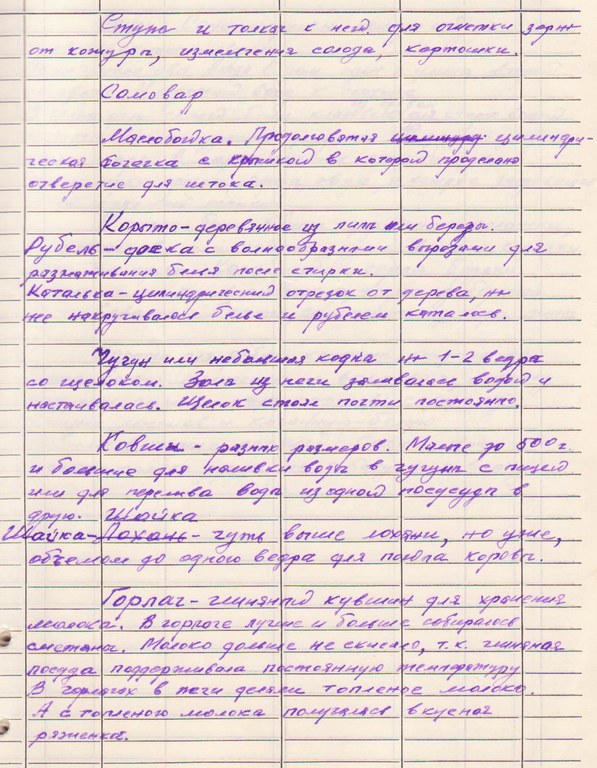 Ступа и толкач к ней для очистки зерна
от кожуры, измелчения солода, картошки.
Самовар
Маслобойка. Продолговатая цилиндри-
ческая бочечка с крышкой в которой проделано
отверстие для штока.
Корыто - деревянное из липы или березы.
Рубель - доска с волнообразными вырезами для
разглаживания белья после стирки.
Каталька - цилиндрический отрезок от дерева, на
нее накручивалось белье и рубелем каталось.
Чугун или небольшая кадка на 1-2 ведра
со щелоком. Зола из печи заливалась водой и
настаивалась. Щелок стоял почти постоянно.
Ковши - разных размеров. Малые до 500 г.
и большие для наливки воды в чугуны с пищей
или для перелива воды из одной посусуды в
другую. Шайка
Шайка-Лохань - чуть выше лохани, но уже,
объемом до одного ведра для пойла коровы.
Горлач - глиняный кувшин для хранения
молока. В горлаче лучше и больше собиралось
сметаны. Молоко дольше не скисало, т.к. глиняная
посуда поддерживала постоянную температуру
В горлачах в печи делали топленое молоко.
А с топленого молока получалась вкусная
ряженка.